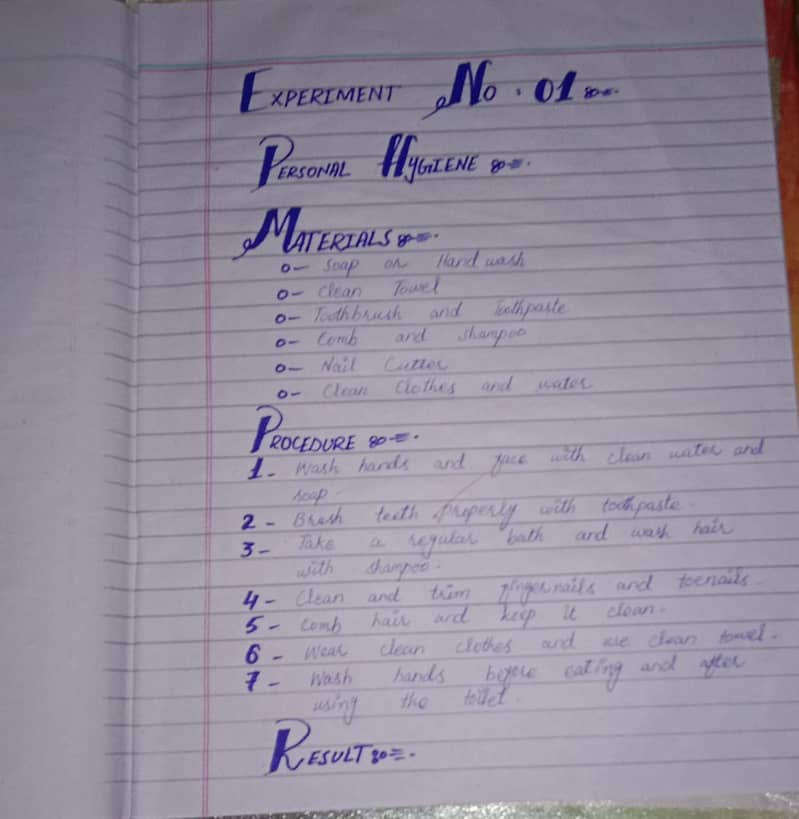 EXPERIMENT No. 01
PERSONAL HYGIENE
MATERIALS
o- Soap or Hand wash
o- Clean Towel
o- Toothbrush and Toothpaste
o- Comb and shampoo
o- Nail Cutter
o- Clean Clothes and water
PROCEDURE
1- Wash hands and face with clean water and
soap.
2- Brush teeth properly with toothpaste.
3- Take a regular bath and wash hair
with shampoo.
4- Clean and trim fingernails and toenails.
5- Comb hair and keep it clean.
6- Wear clean clothes and use clean towel.
7- Wash hands before eating and after
using the toilet.
RESULT